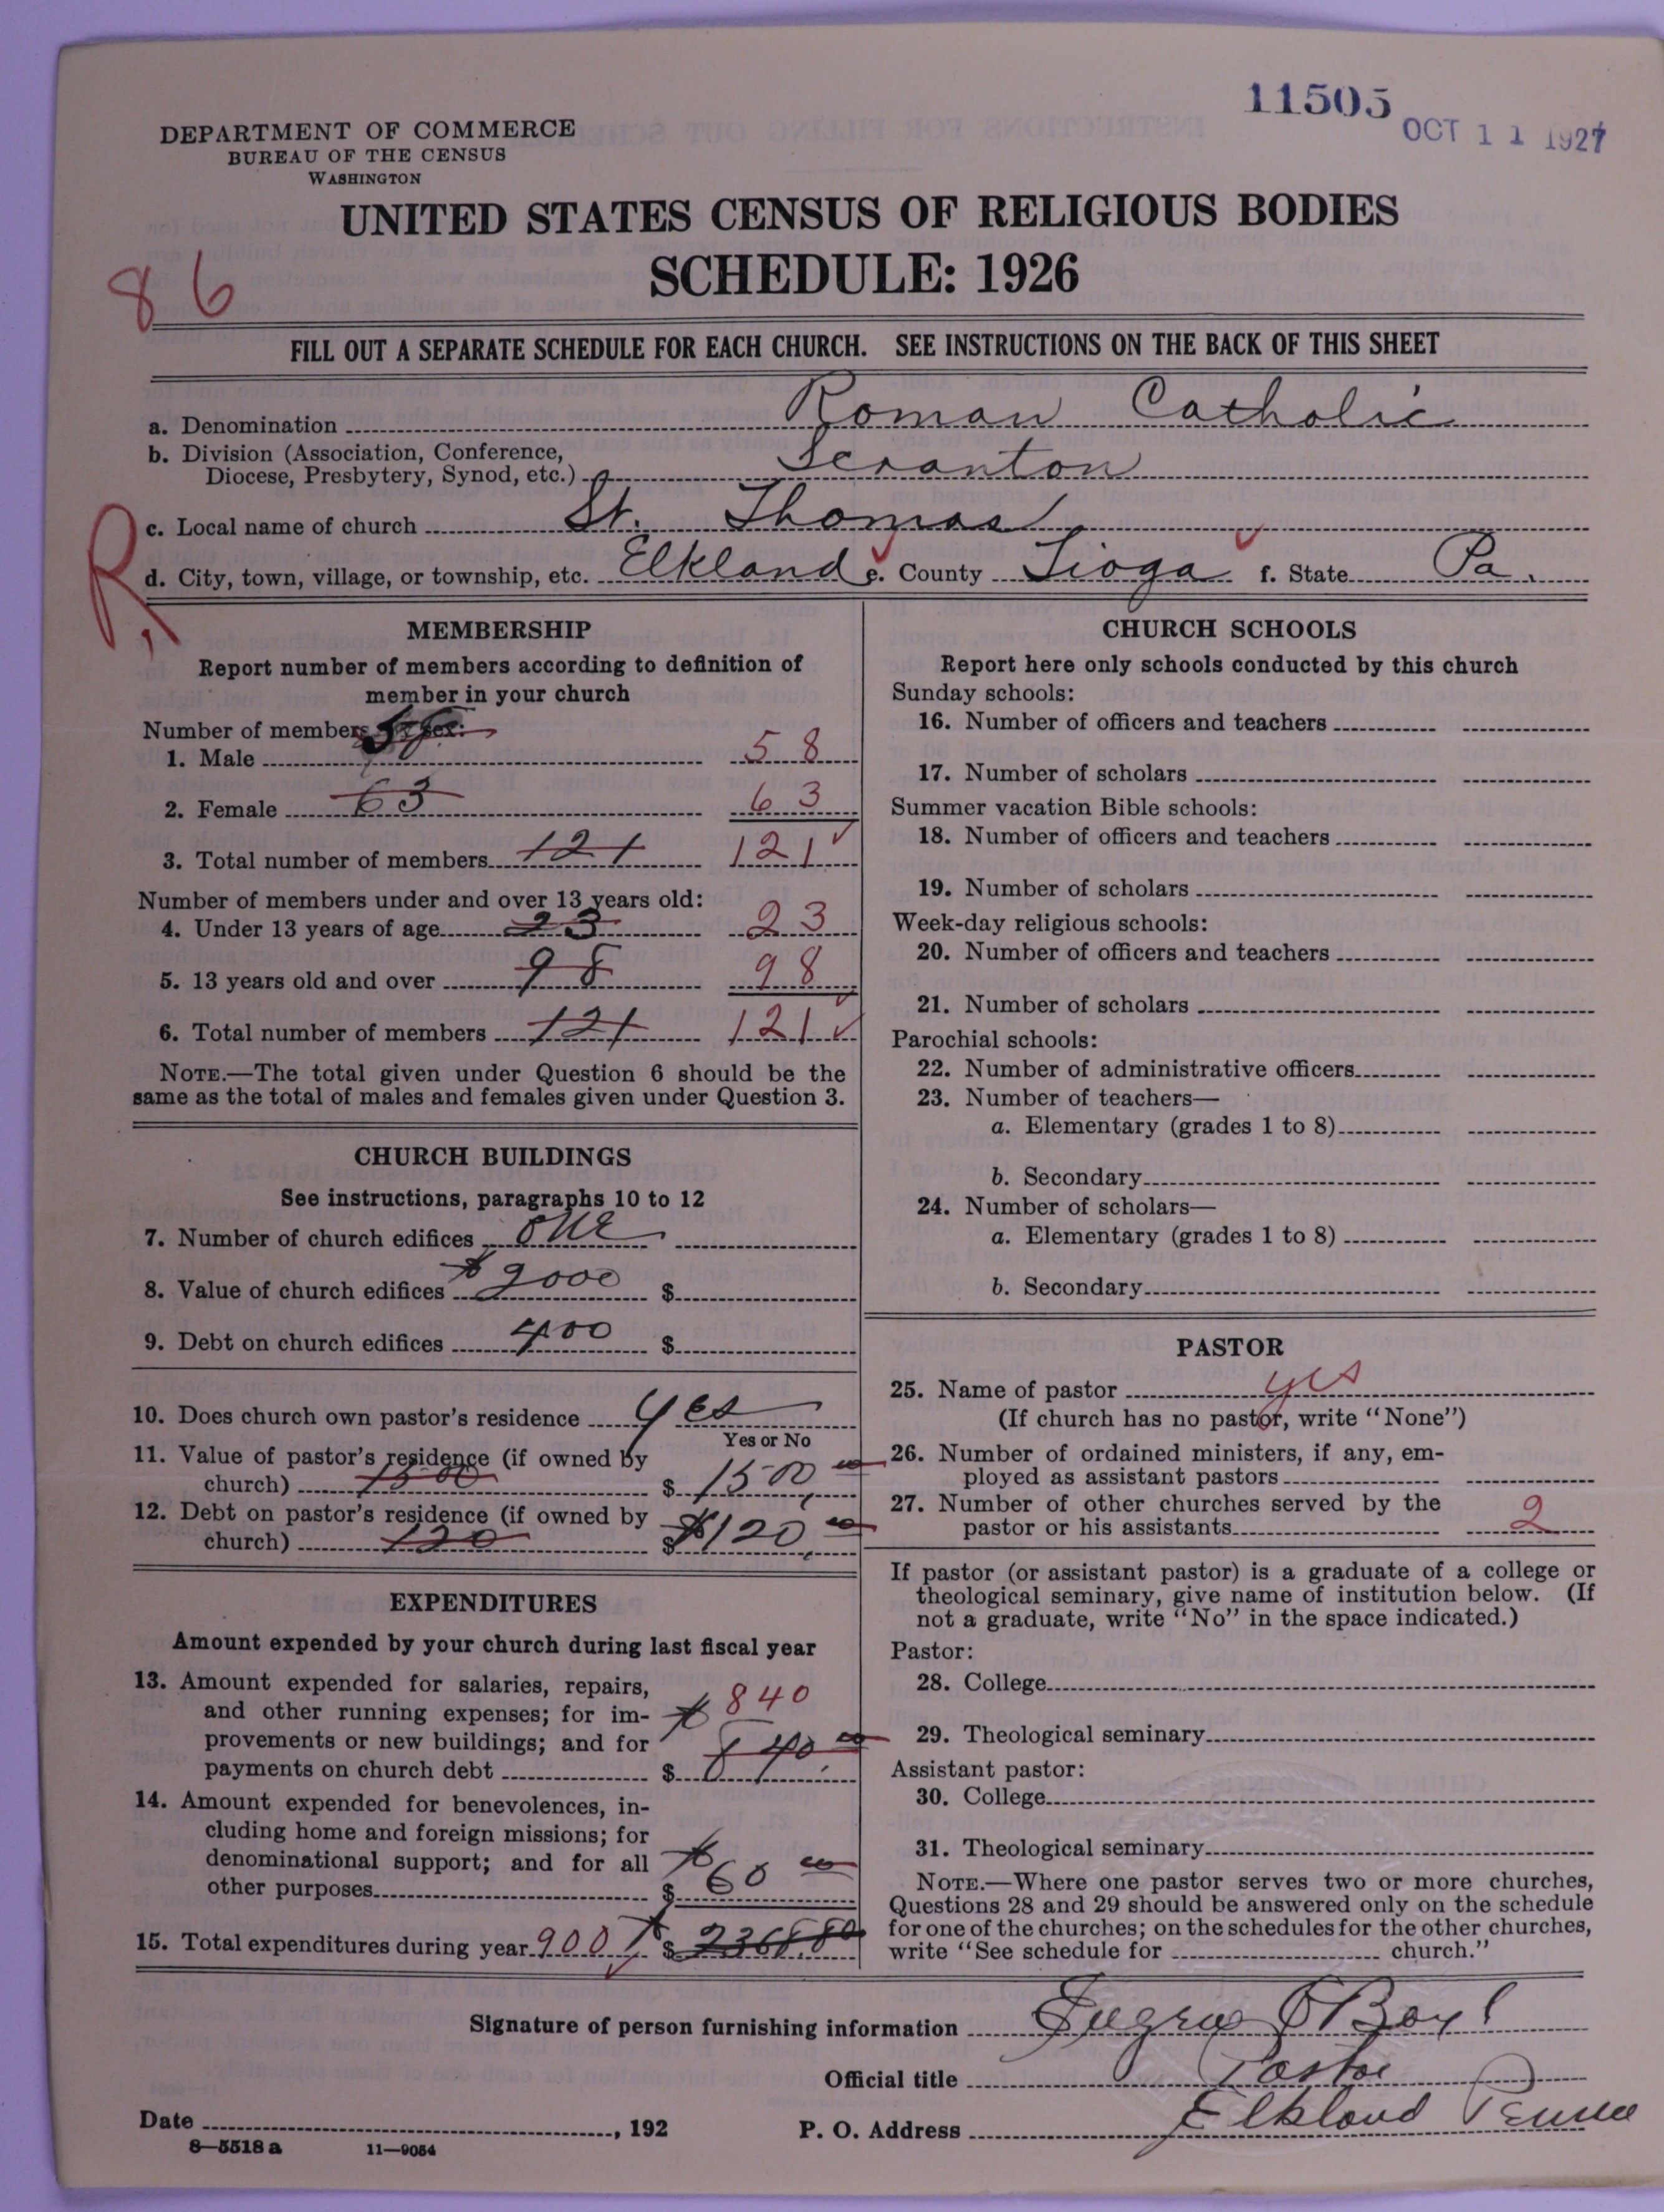 11505
OCT 11 1927
DEPARTMENT OF COMMERCE
BUREAU OF THE CENSUS
WASHINGTON
UNITED STATES CENSUS OF RELIGIOUS BODIES
SCHEDULE: 1926
86
FILL OUT A SEPARATE SCHEDULE FOR EACH CHURCH. SEE INSTRUCTIONS ON THE BACK OF THIS SHEET
a. Denomination Roman Catholic
b. Division (Association, Conference,
Diocese, Presbytery, Synod, etc.) Scranton
c. Local name of church St. Thomas
R
d. City, town, village, or township, etc. Elkland e. County Tioga f. State Pa.
MEMBERSHIP
Report number of members according to definition of
member in your church
Number of members by sex:
1. Male 58 58
2. Female 63 63
3. Total number of members 121 121
Number of members under and over 13 years old:
4. Under 13 years of age 23 23
5. 13 years old and over 98 98
6. Total number of members 121 121
NOTE.—The total given under Question 6 should be the
same as the total of males and females given under Question 3.
CHURCH BUILDINGS
See instructions, paragraphs 10 to 12
7. Number of church edifices one
8. Value of church edifices $ 9000 $
9. Debt on church edifices 400 $
10. Does church own pastor's residence yes
Yes or No
11. Value of pastor's residence (if owned by
church) 1500 $ 1500.00
12. Debt on pastor's residence (if owned by
church) 120 $ $120.00
EXPENDITURES
Amount expended by your church during last fiscal year
13. Amount expended for salaries, repairs,
and other running expenses; for im- $ 840
provements or new buildings; and for
payments on church debt $ 840.00
14. Amount expended for benevolences, in-
cluding home and foreign missions; for
denominational support; and for all $
other purposes $ 60 00
15. Total expenditures during year 900 $ 2368.80
CHURCH SCHOOLS
Report here only schools conducted by this church
Sunday schools:
16. Number of officers and teachers
17. Number of scholars
Summer vacation Bible schools:
18. Number of officers and teachers
19. Number of scholars
Week-day religious schools:
20. Number of officers and teachers
21. Number of scholars
Parochial schools:
22. Number of administrative officers
23. Number of teachers—
a. Elementary (grades 1 to 8)
b. Secondary
24. Number of scholars—
a. Elementary (grades 1 to 8)
b. Secondary
PASTOR
25. Name of pastor yes
(If church has no pastor, write "None")
26. Number of ordained ministers, if any, em-
ployed as assistant pastors
27. Number of other churches served by the
pastor or his assistants 2
If pastor (or assistant pastor) is a graduate of a college or
theological seminary, give name of institution below. (If
not a graduate, write "No" in the space indicated.)
Pastor:
28. College
29. Theological seminary
Assistant pastor:
30. College
31. Theological seminary
NOTE.—Where one pastor serves two or more churches,
Questions 28 and 29 should be answered only on the schedule
for one of the churches; on the schedules for the other churches,
write "See schedule for church."
Signature of person furnishing information Eugene O'Boyl
Official title Pastor
Date , 192 P. O. Address Elkland Penna
8—5518 a 11—9054